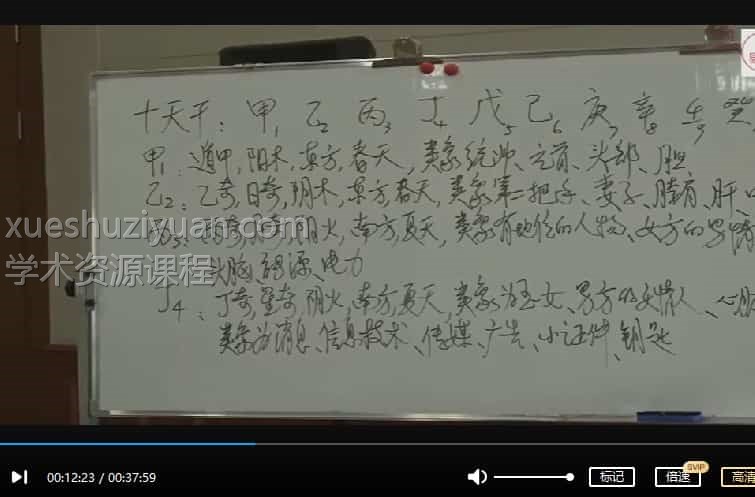 十天干: 甲1 乙2 丙3 丁4 戊5 己6 庚7 辛8 壬9 癸
甲1: 遁甲, 阳木, 东方, 春天, 类象统帅、元首、头部、胆
乙2: 乙奇, 日奇, 阴木, 东方, 春天, 类象第二把手、妻子、臂肩、肝、
丙3: 丙奇, 月奇, 阳火, 南方, 夏天, 类象有地位的人物、女方的男情
xueshuziyuan.com
学术资源课程
头脑、能源、电力
丁4: 丁奇, 星奇, 阴火, 南方, 夏天, 类象为玉女、男方的女情人、心脏
类象为消息、信息技术、传媒、广告、小证件、钥匙
00:12:23 / 00:37:59
标记
倍速
SVIP
高清